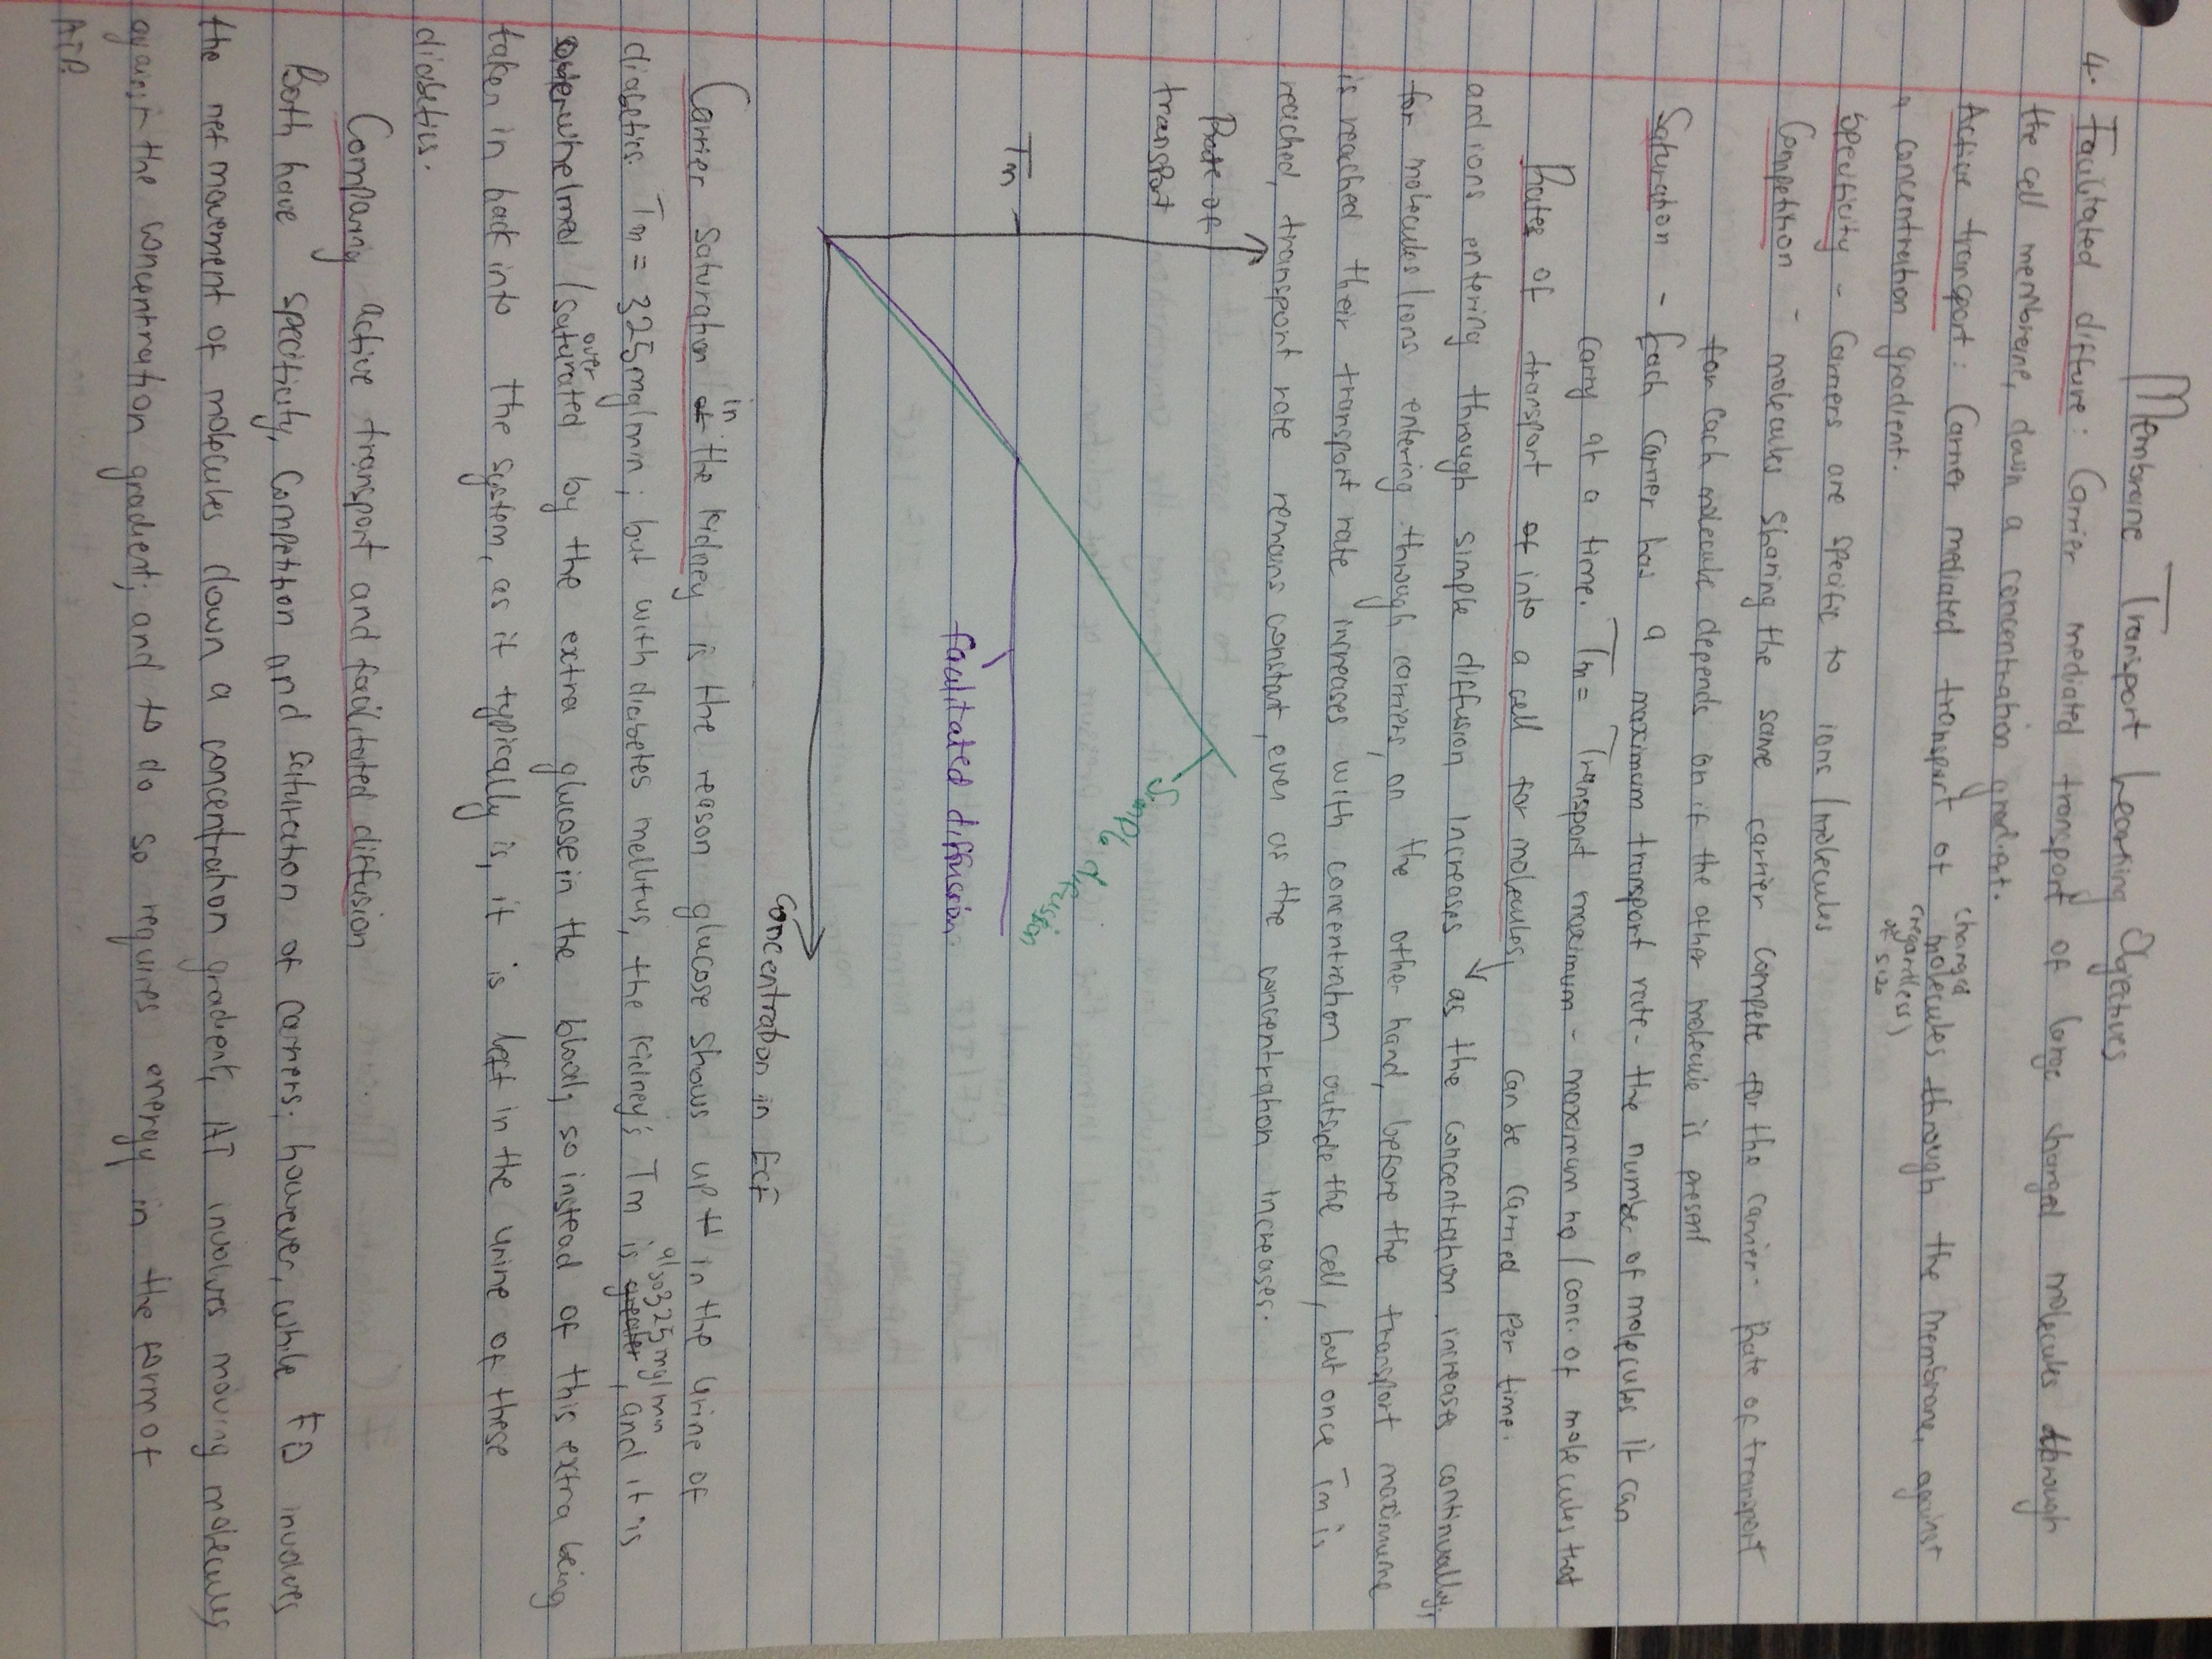 Membrane Transport Learning Objectives
4. Facilitated diffusion: Carrier mediated transport of large charged molecules through
the cell membrane, down a concentration gradient.
charged
Active transport: Carrier mediated transport of molecules through the membrane, against
(regardless)
of size
a concentration gradient.
Specificity - Carriers are specific to ions/molecules
Competition - molecules sharing the same carrier compete for the carrier - Rate of transport
for each molecule depends on if the other molecule is present
Saturation - Each carrier has a maximum transport rate - the number of molecules it can
carry at a time. Tm = Transport maximum - maximum no/conc. of molecules that
can be carried per time.
Rates of transport of into a cell for molecules
and ions entering through simple diffusion increases as the concentration increases continually;
for molecules/ions entering through carriers, on the other hand, before the transport maximum
is reached their transport rate increases with concentration outside the cell, but once Tm is
reached, transport rate remains constant, even as the concentration increases.
Rate of
transport
Simple diffusion
Tm
facilitated diffusion
Concentration in ECF
in
Carrier saturation of the kidney is the reason glucose shows up in the urine of
also 325mg/min
diabetics. Tm = 325mg/min; but with diabetes mellitus, the kidney's Tm is greater, and it is
over
overwhelmed/saturated by the extra glucose in the blood, so instead of this extra being
taken in back into the system, as it typically is, it is left in the urine of these
diabetics.
Comparing active transport and facilitated diffusion
Both have specificity, Competition and saturation of carriers. however, while FD involves
the net movement of molecules down a concentration gradient, AT involves moving molecules
against the concentration gradient; and to do so requires energy in the form of
ATP.